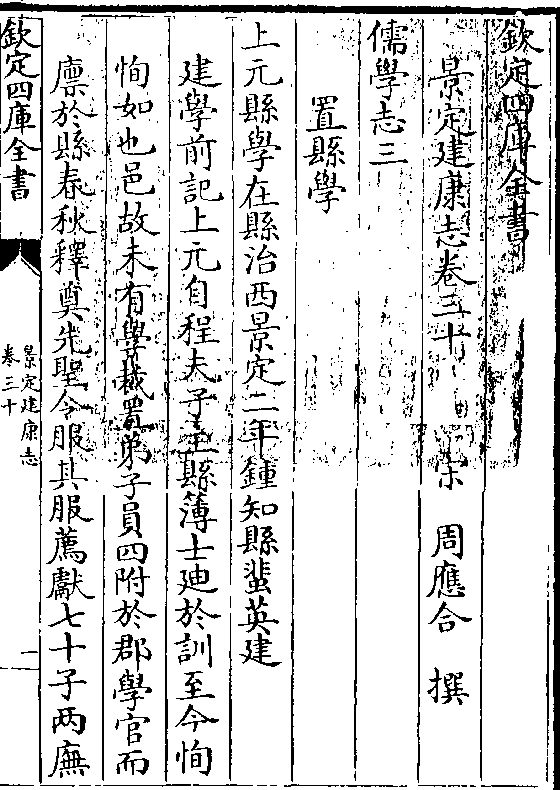 欽定四庫全書
景定建康志卷三十 宋 周應合 撰
儒學志三
置縣學
上元縣學在縣治西景定二年鍾知縣蜚英建
建學前記上元自程夫子主縣簿士廸於訓至今恂
恂如也邑故未有學裁置弟子員四附於郡學官而
廩於縣春秋釋奠先聖令服其服薦獻七十子两廡
欽定四庫全書
景定建康志
卷三十
一